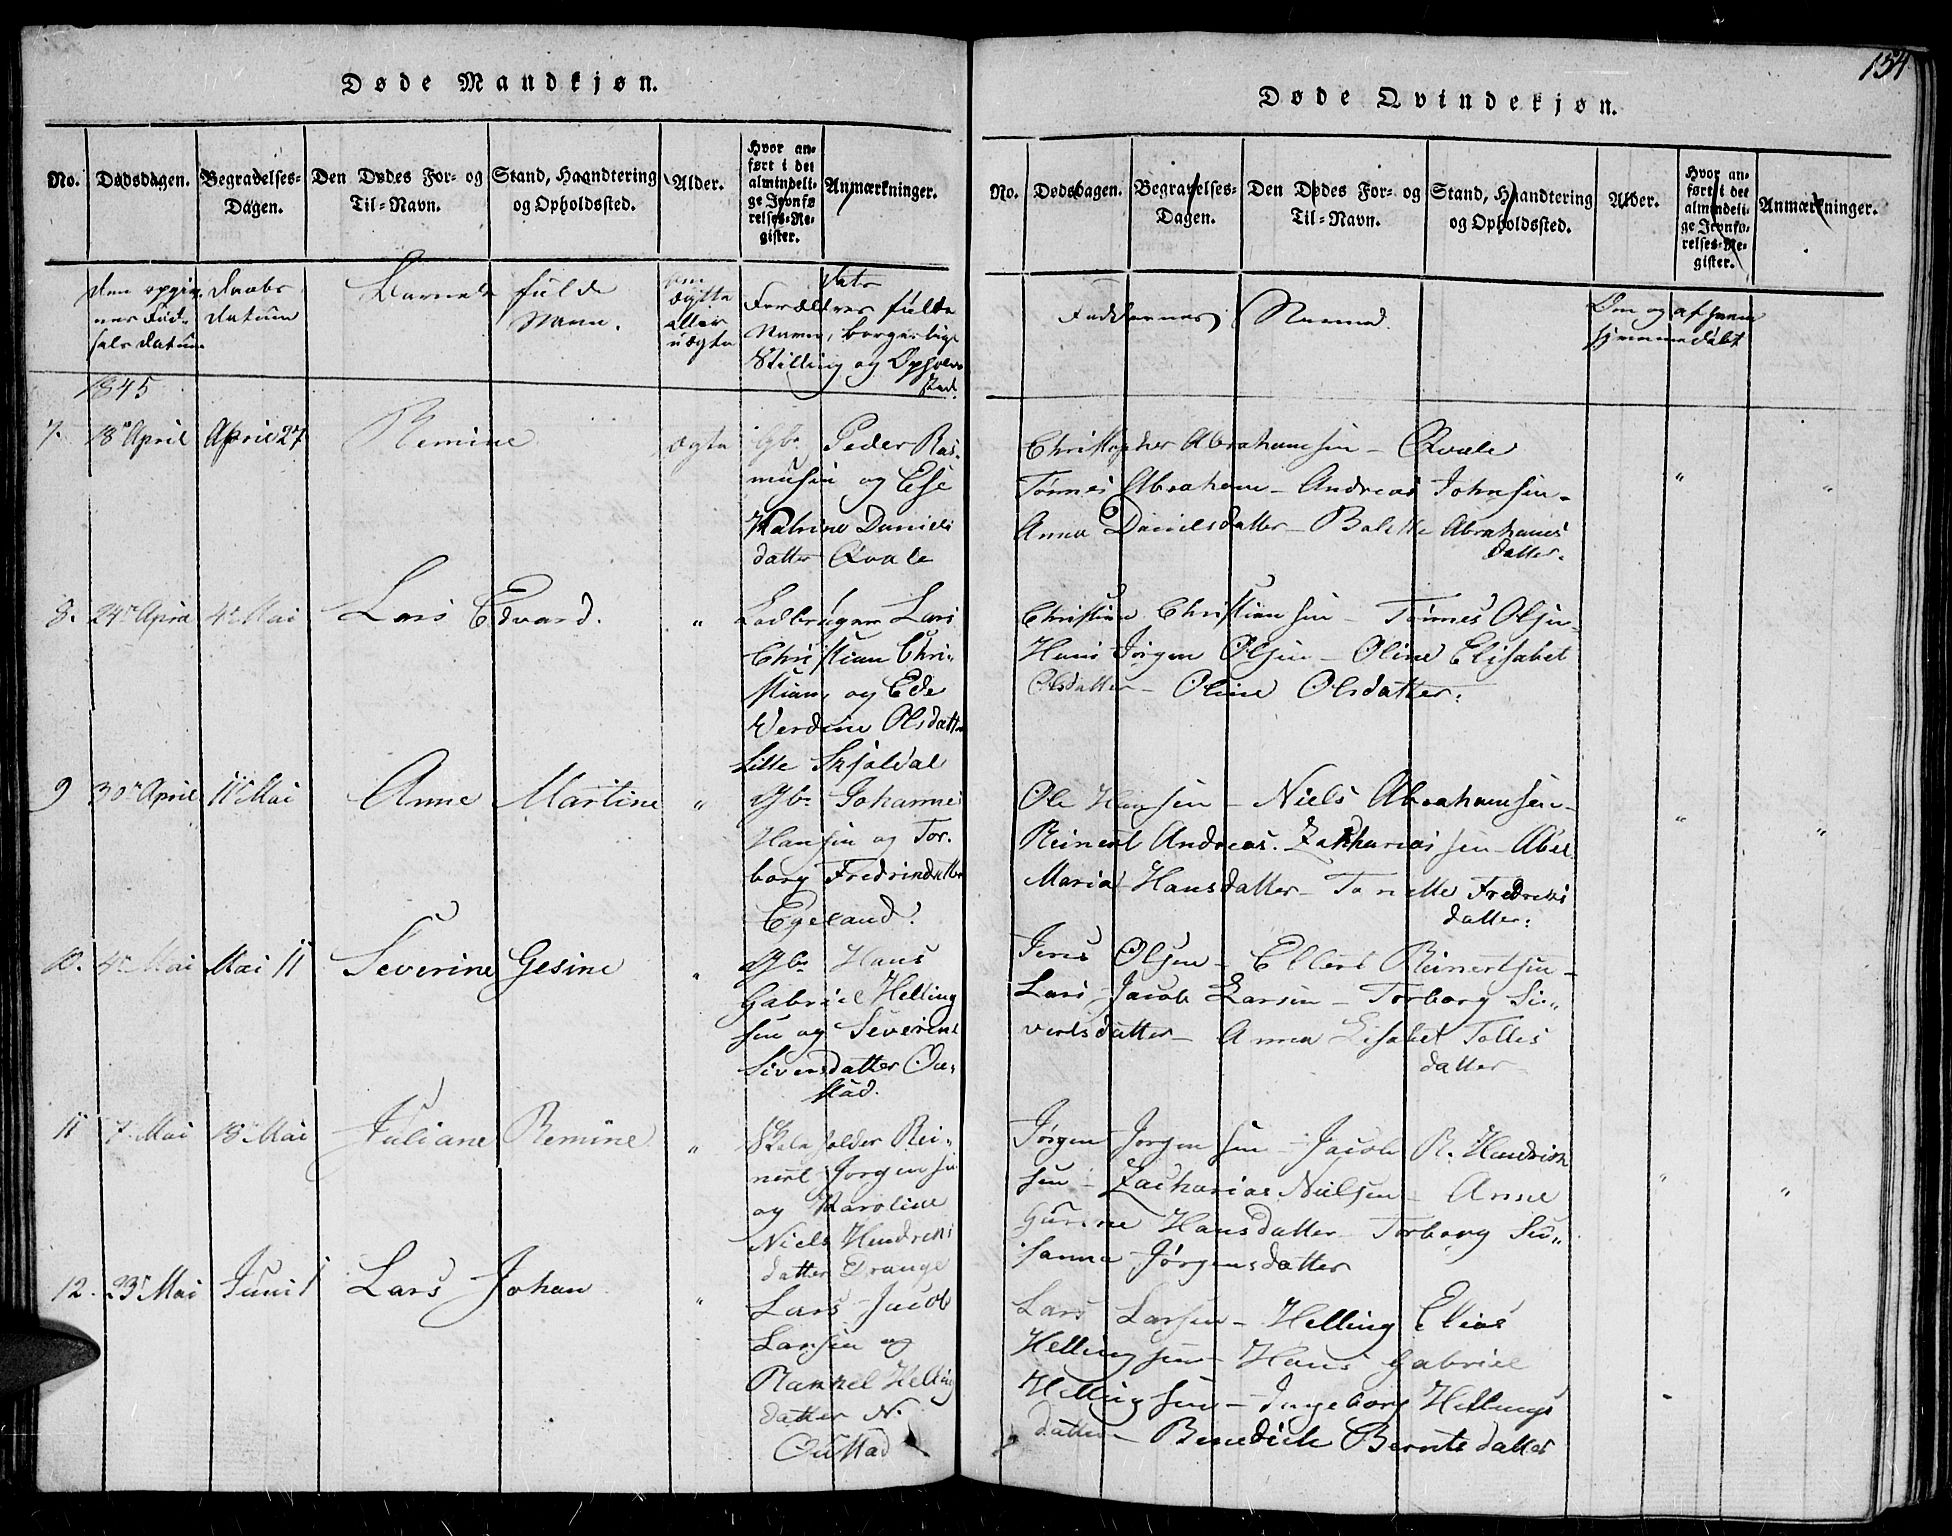 154
Døde Mandkjøn.
No. Dødsdagen. Begravelses-Dagen. Den Dødes For- og Til-Navn. Stand, Haandtering og Opholdssted. Alder. Hvor anført i det almindelige Jevnførelses-Register. Anmærkninger.
Den opgivnes Fødsels Datum
Daabs Datum
Barnets fulde Navn.
om ægte eller uægte
Forældres fulde
Navn, borgerlige
Stilling og Opholds
sted.
1845
7. 18de April April 27 Remine ægte Gb. Peder Ras-
musen og Else
Katrine Daniels
datter Qvale
8. 24de April 4de Mai Lars Edvard. " Lars
Christian Chri-
stians og Ede
Verdine Olsdatter
Lille
9 30de April 11te Mai Anne Martine " Gb. Johannes
Hansen og Tor-
borg
Egeland.
10. 4de Mai Mai 11 Severine Gesine " Gb. Hans
Gabriel Helling
sen og Severine
Siversdatter Ou-
stad.
11 7. Mai 18de Mai Juliane Remine " Rei-
nert Jørgensen
og Karoline
Niels Hendriks
datter Drange
12. 23de Mai Juni 1 Lars Johan " Lars Jacob
Larsen og
Helling
datter N.
Oustad
Døde Qvindekjøn.
No. Dødsdagen. Begravelses-Dagen. Den Dødes For- og Til-Navn. Stand, Haandtering og Opholdssted. Alder. Hvor anført i det almindelige Jevnførelses-Register. Anmærkninger.
Faddernes Navne
Om og af hvem
hjemmedøbt
Christopher Abrahamsen - Qvale
Tønnes Abraham - Andreas Johnsen - " "
Anna Danielsdatter - Abrahams
datter.
Christian Christiansen - Tønnes Olsen
Hans Jørgen Olsen - Oline Elisabet
Olsdatter - Oline Olsdatter.
Ole Hansen - Niels Abrahamsen -
Reinert Andreas Zakhariassen - Abel " "
Maria Hansdatter - Tonette Fredriks
datter.
Jens Olsen - Ellert Reinertsen -
Lars Jacob Larsen - Torborg Si-
vertsdatter - Anna Lisabet Tolles
datter
Jørgen Jørgensen - Jacob R. Hendrik
sen - Zacharias Nielsen - Anne " "
Gurine Hansdatter - Torborg Su-
sanna Jørgensdatter
Lars Larsen - Helling Elias
Hellingsen - Hans Gabriel
Hellingsen - Ingeborg Hellings
datter - Benedicte Berntsdatter